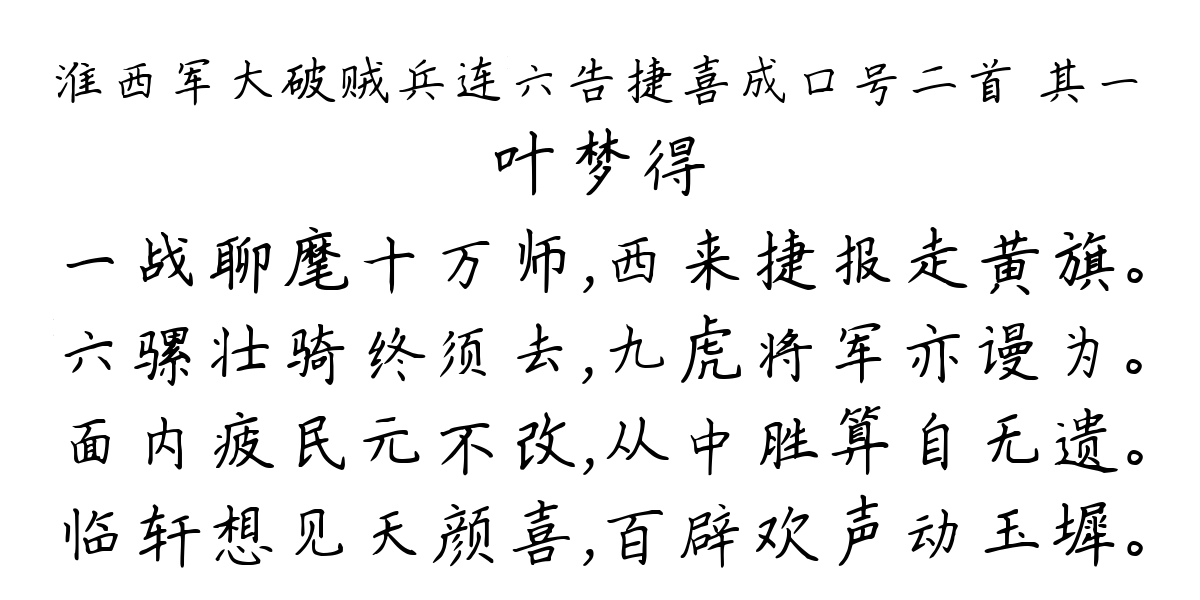 淮西军大破贼兵连六告捷喜成口号二首 其一
叶梦得
一战聊麾十万师,西来捷报走黄旗。
六骡壮骑终须去,九虎将军亦谩为。
面内疲民元不改,从中胜算自无遗。
临轩想见天颜喜,百辟欢声动玉墀。